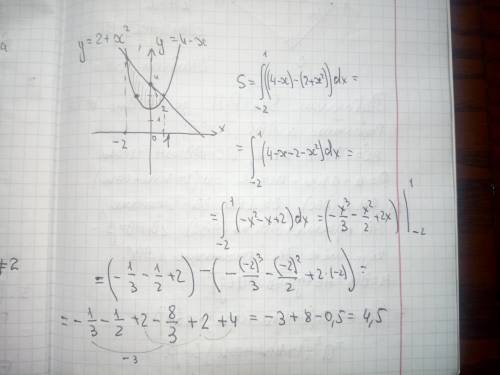 y=2+x² y=4-x
4
2
1
-2 0 1 x
S=∫₋₂¹((4-x)-(2+x²))dx=
=∫₋₂¹(4-x-2-x²)dx=
=∫₋₂¹(-x²-x+2)dx=(-x³/3-x²/2+2x)|₋₂¹
#2
=(-1/3-1/2+2)-(-(-2)³/3-(-2)²/2+2·(-2))=
=-1/3-1/2+2-8/3+2+4=-3+8-0,5=4,5
-3